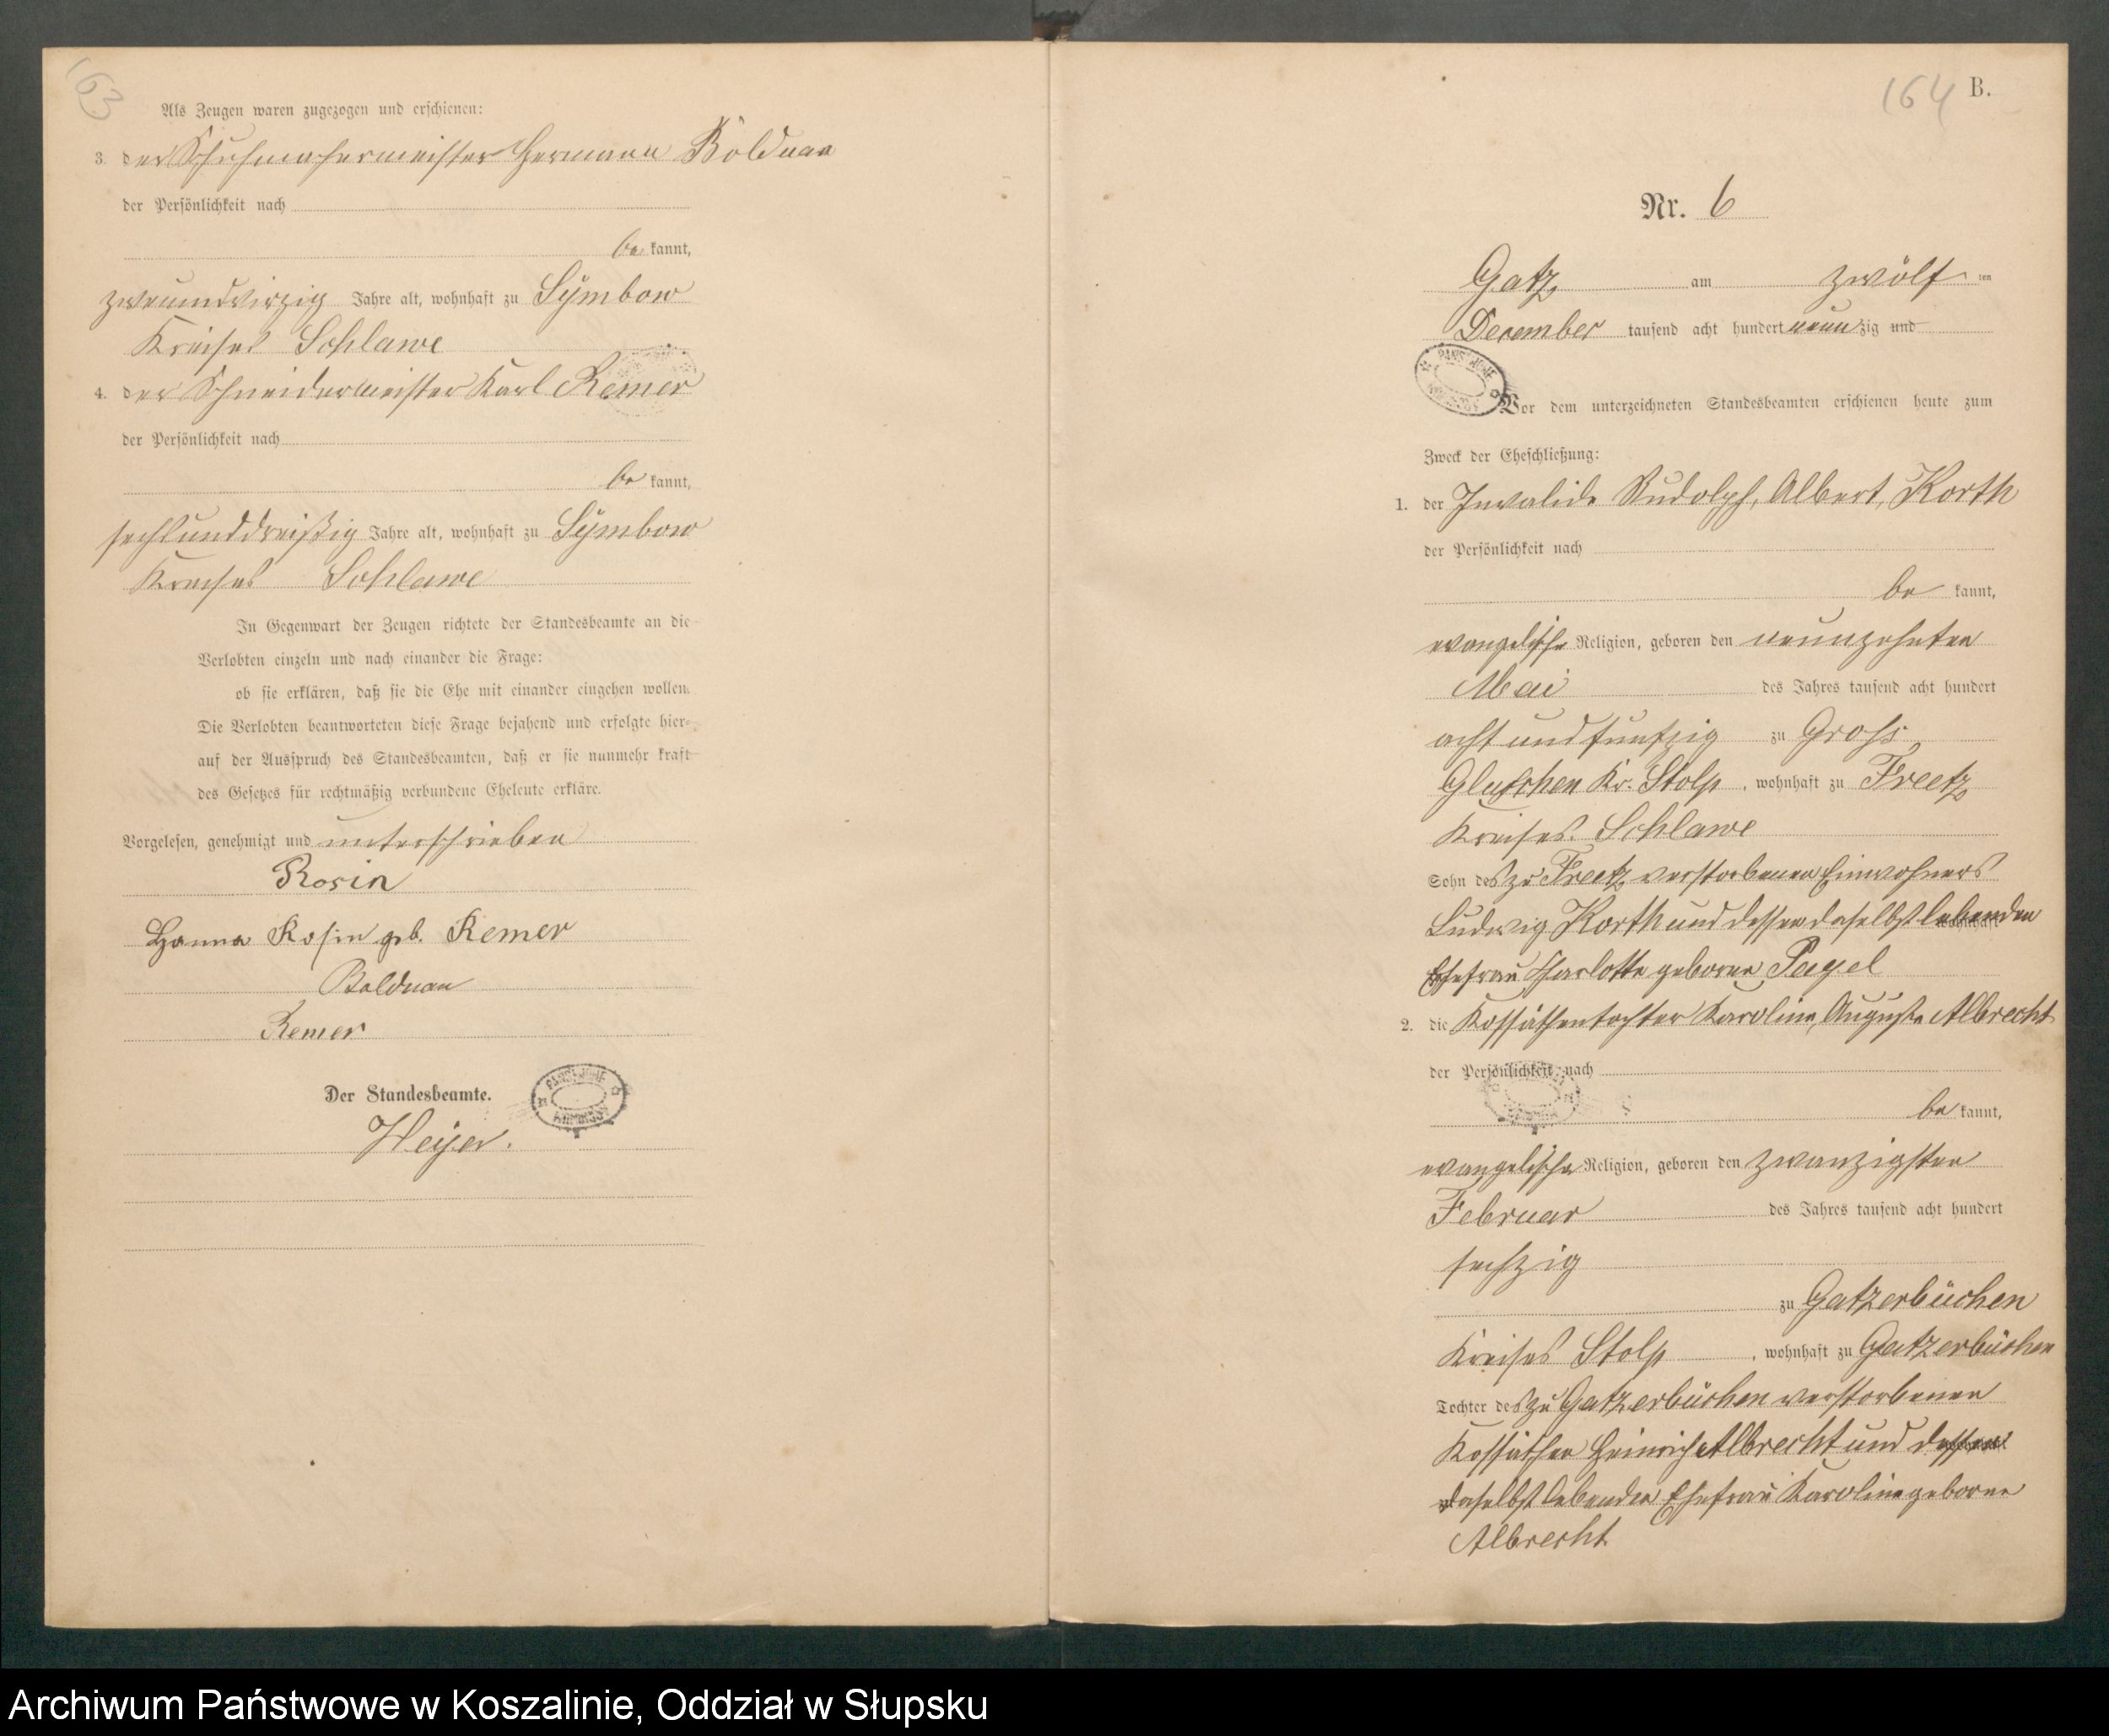 163
Als Zeugen waren zugezogen und erschienen:
3. der Schuhmachermeister Hermann Bolduan
der Persönlichkeit nach
be kannt,
zweiundvierzig Jahre alt, wohnhaft zu Symbow
Kreises Schlawe
4. der Schneidermeister Karl Remer
der Persönlichkeit nach
be kannt,
sechsunddreißig Jahre alt, wohnhaft zu Symbow
Kreises Schlawe
In Gegenwart der Zeugen richtete der Standesbeamte an die
Verlobten einzeln und nach einander die Frage:
ob sie erklären, daß sie die Ehe mit einander eingehen wollen.
Die Verlobten beantworteten diese Frage bejahend und erfolgte hier-
auf der Ausspruch des Standesbeamten, daß er sie nunmehr kraft
des Gesetzes für rechtmäßig verbundene Eheleute erkläre.
Vorgelesen, genehmigt und unterschrieben
Rosin
Hanna Rosin geb. Remer
Balduan
Remer
Der Standesbeamte.
Heyer.
164 B.
Nr. 6
Gatz am zwölf ten
December tausend acht hundert neun zig und
Vor dem unterzeichneten Standesbeamten erschienen heute zum
Zweck der Eheschließung:
1. der Invalide Rudolph, Albert, Korth
der Persönlichkeit nach
be kannt,
evangelische Religion, geboren den neunzehnten
Mai des Jahres tausend acht hundert
acht und funfzig zu Gross
Gluschen Kr. Stolp, wohnhaft zu Freetz
Kreises Schlawe
Sohn des zu Freetz verstorbenen Einwohners
Ludwig Korth und dessen daselbst lebenden
Ehefrau Charlotte geborne Pagel
2. die Kossäthentochter Karoline, Auguste Albrecht
der Persönlichkeit nach
be kannt,
evangelischer Religion, geboren den zwanzigsten
Februar des Jahres tausend acht hundert
sechzig
zu Gatzerbüchen
Kreises Stolp, wohnhaft zu Gatzerbüchen
Tochter des zu Gatzerbüchen verstorbenen
Kossäthen Heinrich Albrecht und dessen
daselbst lebenden Ehefrau Karoline geborne
Albrecht
Archiwum Państwowe w Koszalinie, Oddział w Słupsku